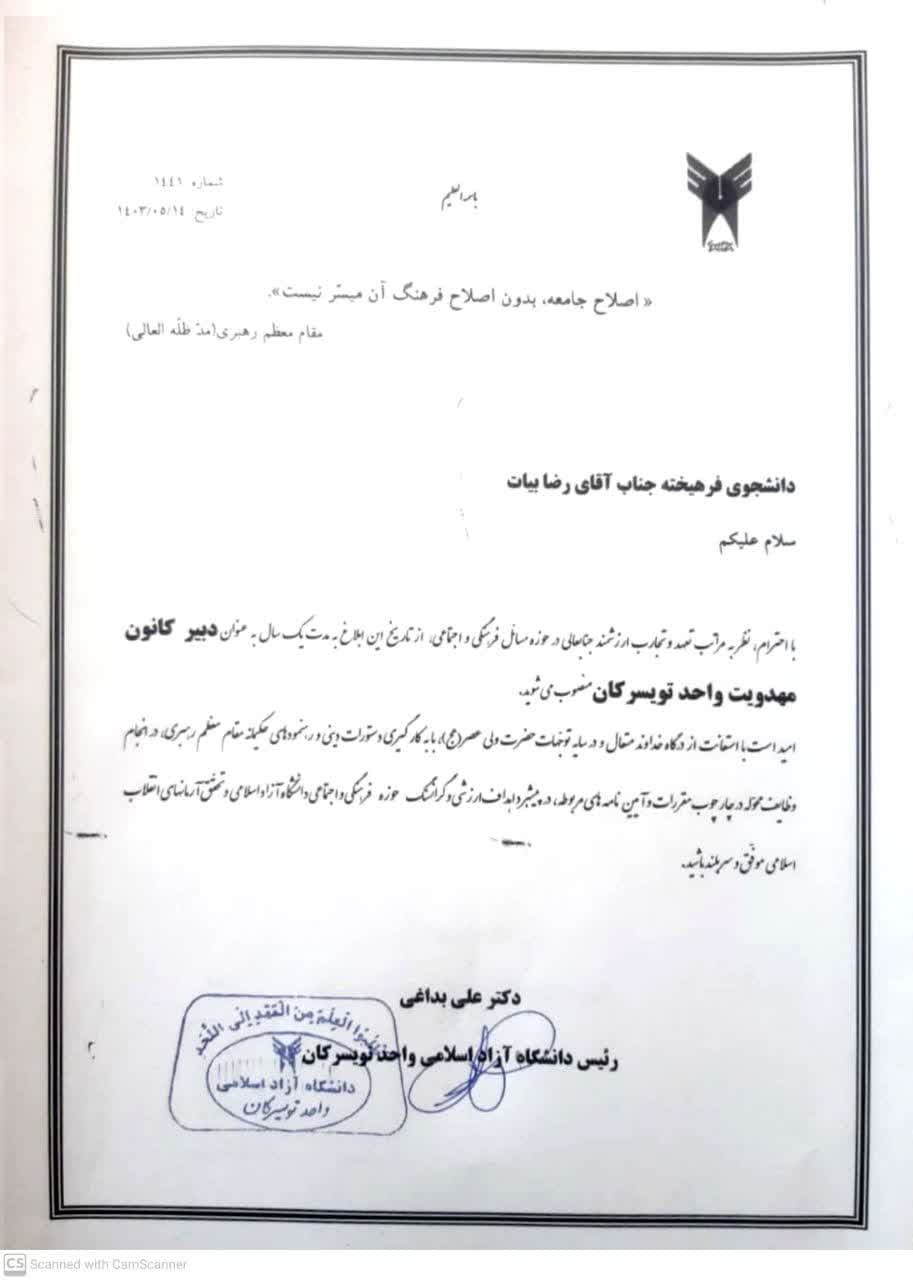 باسمه العلیم
شماره ۱٤٤۱
تاریخ: ۱٤۰۳/۰۵/۱٤
« اصلاح جامعه، بدون اصلاح فرهنگ آن میسّر نیست».
مقام معظم رهبری(مدّ ظلّه العالی)
دانشجوی فرهیخته جناب آقای رضا بیات
سلام علیکم
با احترام، نظر به مراتب تعهد و تجارب ارزشمند جنابعالی در حوزه مسائل فرهنگی و اجتماعی، از تاریخ این ابلاغ به مدت یک سال به عنوان دبیر کانون
مهدویت واحد تویسرکان منصوب می شوید.
امید است با استعانت از درگاه خداوند متعال و در سایه توجهات حضرت ولی عصر(عج)، با به کارگیری دستورات دینی و رهنمودهای حکیمانه مقام معظم رهبری، در انجام
وظایف محوله در چارچوب مقررات و آیین نامه های مربوطه، در پیشبرد اهداف ارزشی و گرانسنگ حوزه فرهنگی و اجتماعی دانشگاه آزاد اسلامی و تحقق آرمانهای انقلاب
اسلامی موفّق و سربلند باشید.
دکتر علی بداغی
رئیس دانشگاه آزاد اسلامی واحد تویسرکان
اطلبوا العلم من المهد إلی اللحد
دانشگاه آزاد اسلامی
واحد تویسرکان
CS Scanned with CamScanner